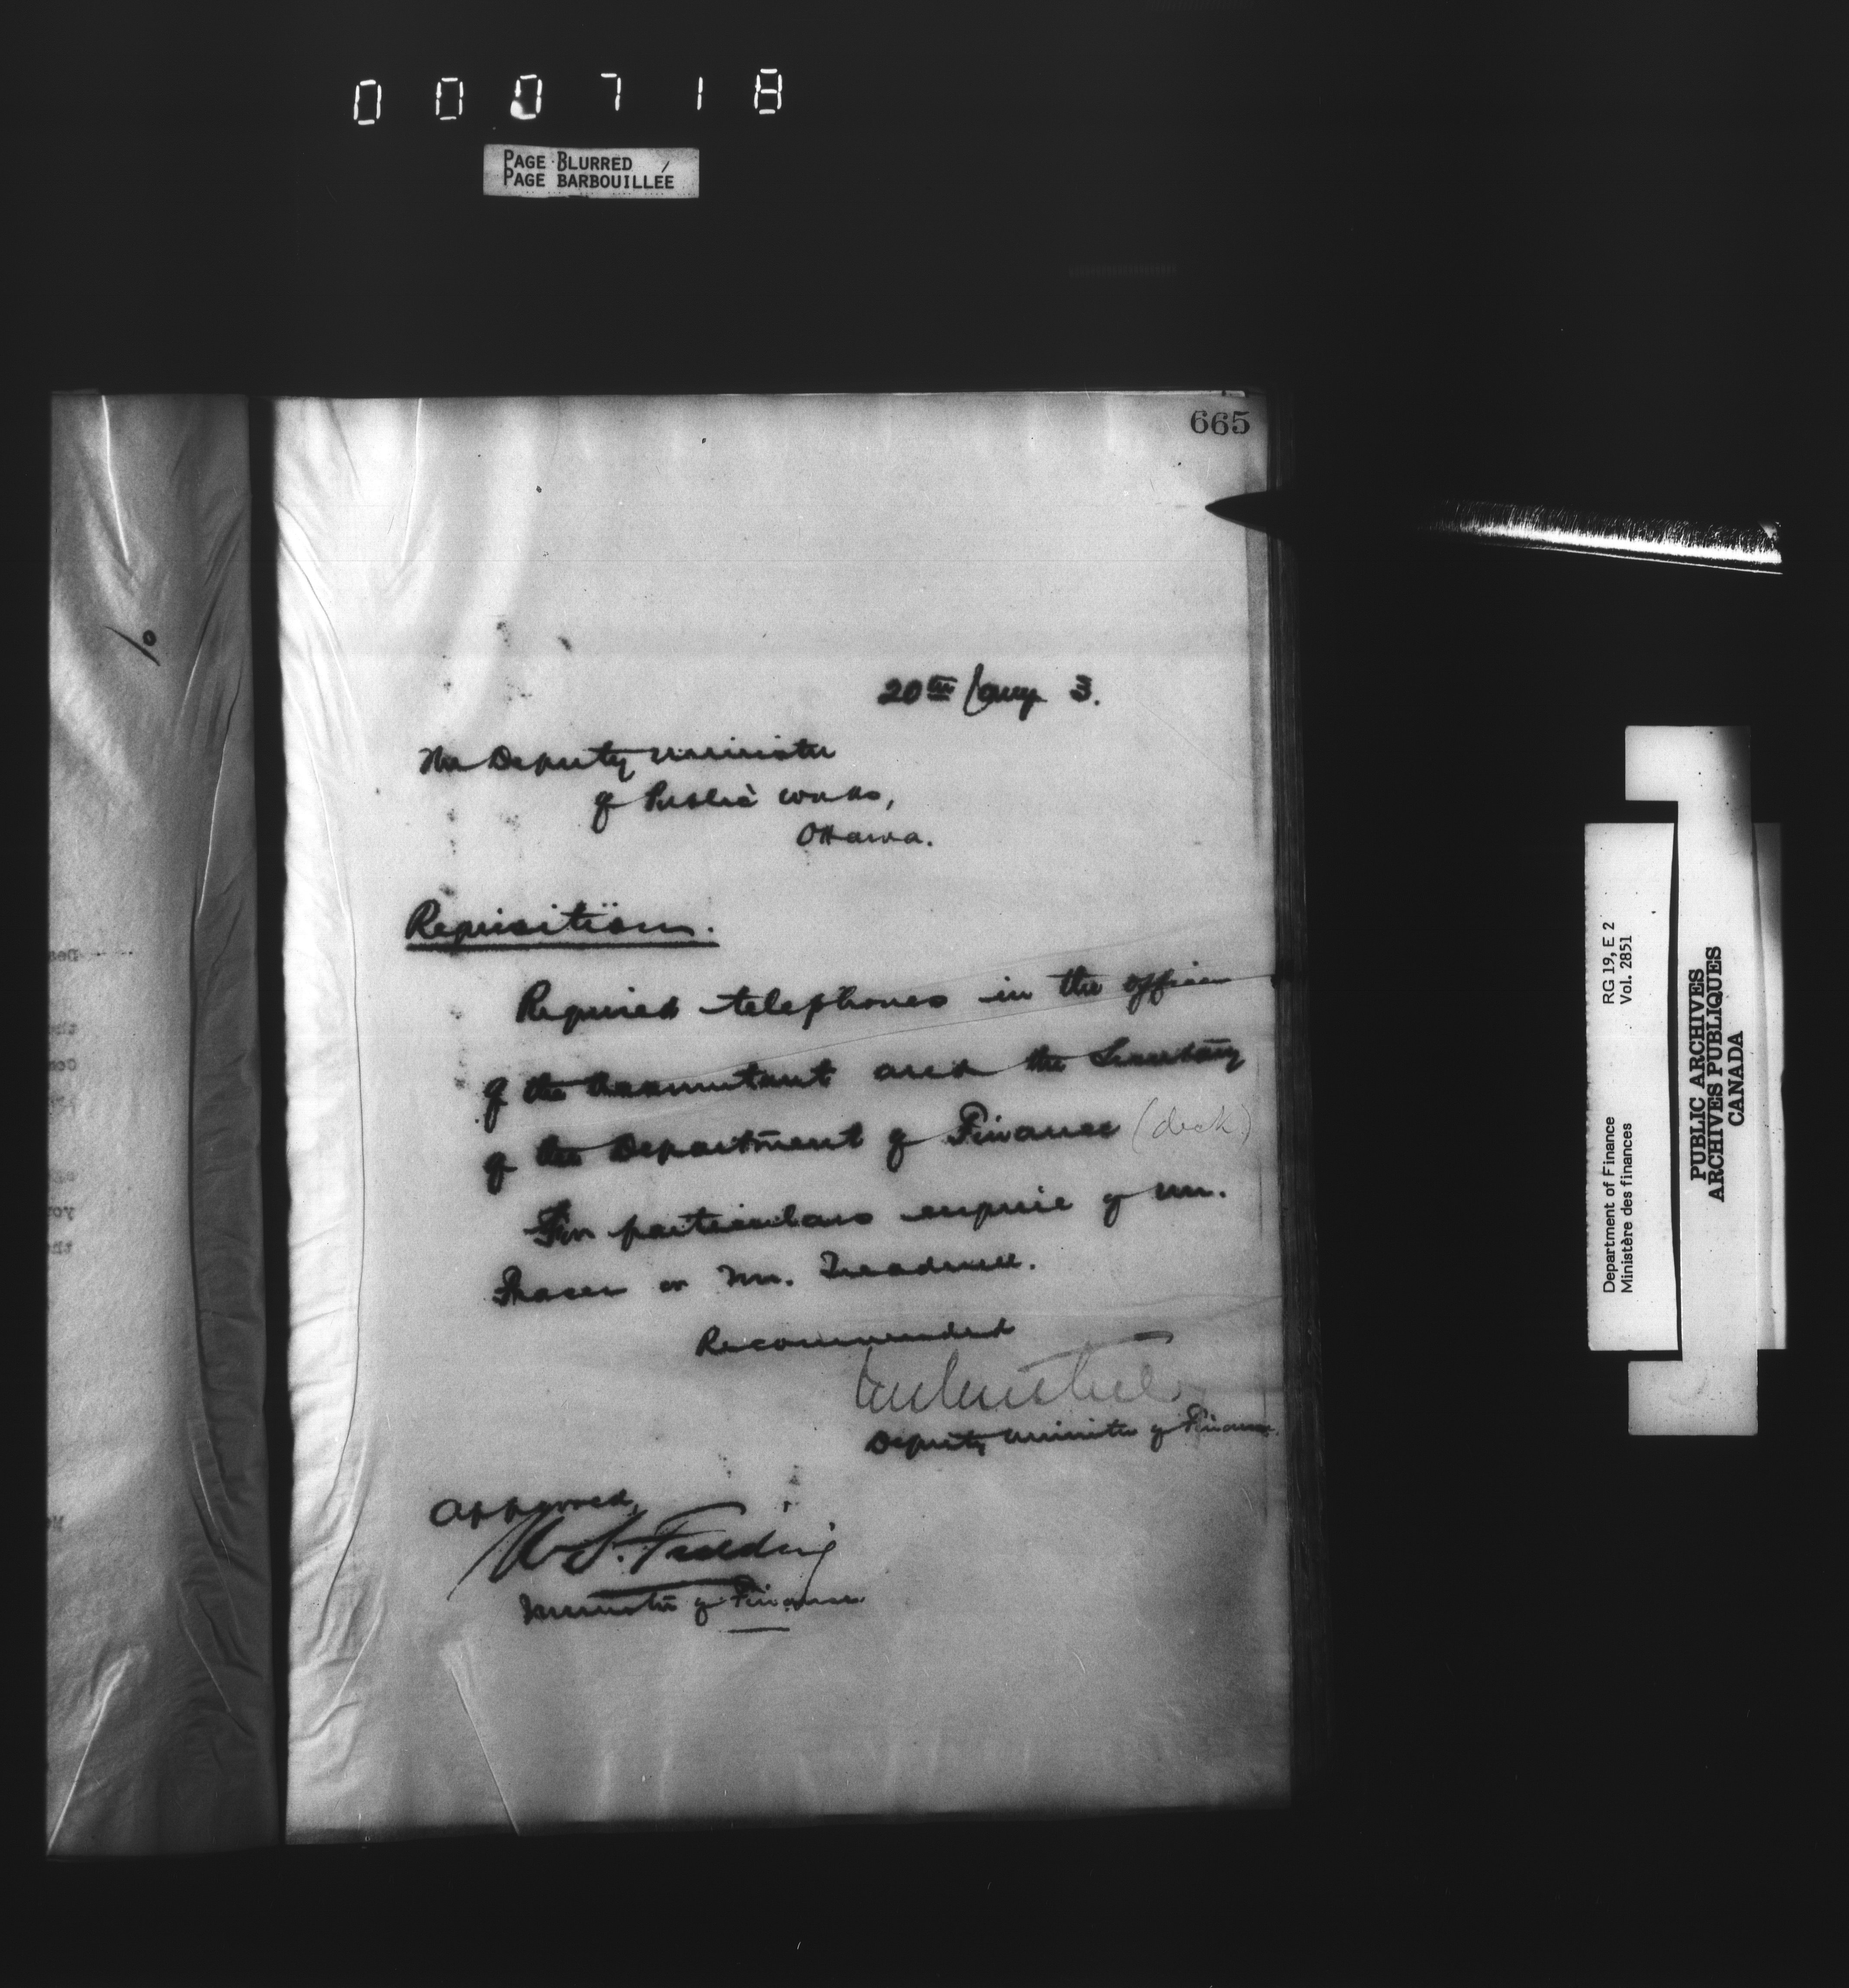 000718
PAGE BLURRED
PAGE BARBOUILLÉE
665
20th Jany 3.
The Deputy Minister
of Public Works,
Ottawa.
Requisition.
Required telephones in the offices
of the Accountant and the Secretary
of the Department of Finance (desk)
For particulars enquire of Mr.
Fraser or Mr. Treadwell.
Recommended
Deputy Minister of Finance.
Approved,
W.S. Fielding
Minister of Finance
Department of Finance RG 19, E 2
Ministère des finances Vol. 2851
PUBLIC ARCHIVES
ARCHIVES PUBLIQUES
CANADA